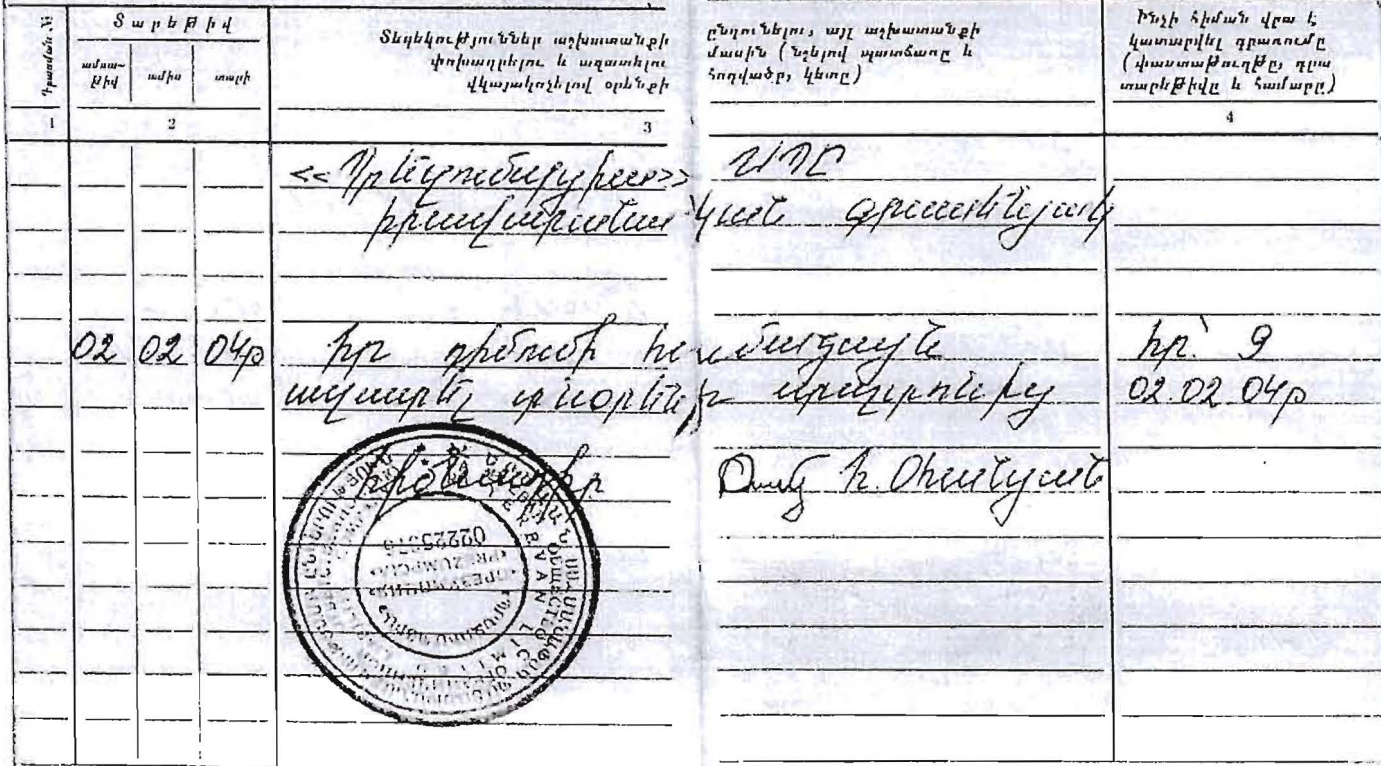 Գրառման №
Տարեթիվ
ամսա-
թիվ
ամիս
տարի
Տեղեկություններ աշխատանքի
փոխադրելու և ազատելու
վկայակոչելով օրենքի
ընդունելու, այլ աշխատանքի
մասին (նշելով պատճառը և
հոդվածը, կետը)
Ինչի հիման վրա է
կատարվել գրառումը
(փաստաթուղթը, դրա
տարեթիվը և համարը)
1 2 3 4
«Պրեզումպցիա» ՍՊԸ
իրավաբանական գրասենյակ
02 02 04թ իր դիմումի համաձայն հր՝ 9
ազատել տնօրենի պաշտոնից 02.02.04թ
Հիմնադիր Օհանյան
02225373
«ПРЕЗУМПЦИЯ»
YEREVAN